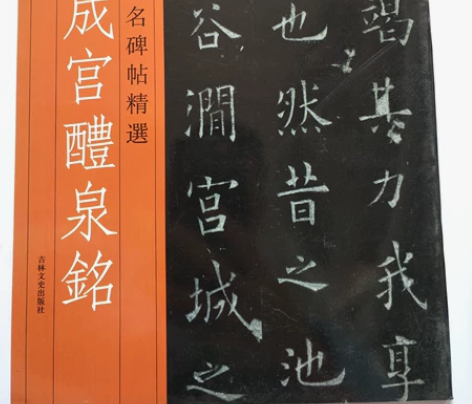 竭其力我享
也然昔之池
谷澗宫城之
名碑帖精選
成宫醴泉銘
吉林文史出版社